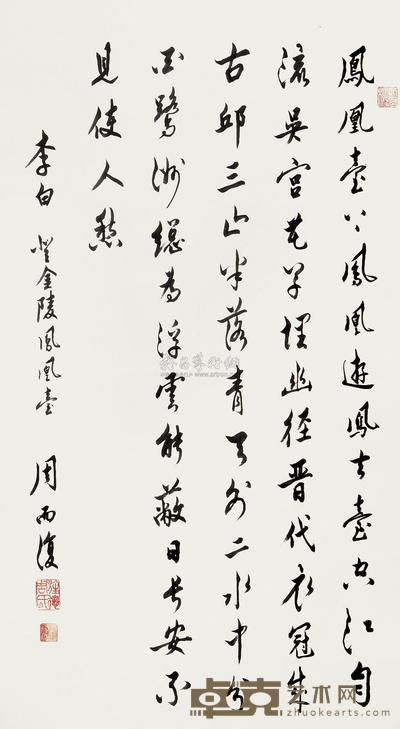 鳳凰臺上鳳凰遊鳳去臺空江自
流吳宫花草埋幽徑晉代衣冠成
古邱三山半落青天外二水中分
白鷺洲總為浮雲能蔽日長安不
見使人愁
李白 登金陵鳳凰臺 周而復
卓克艺术网
www.zhuokearts.com